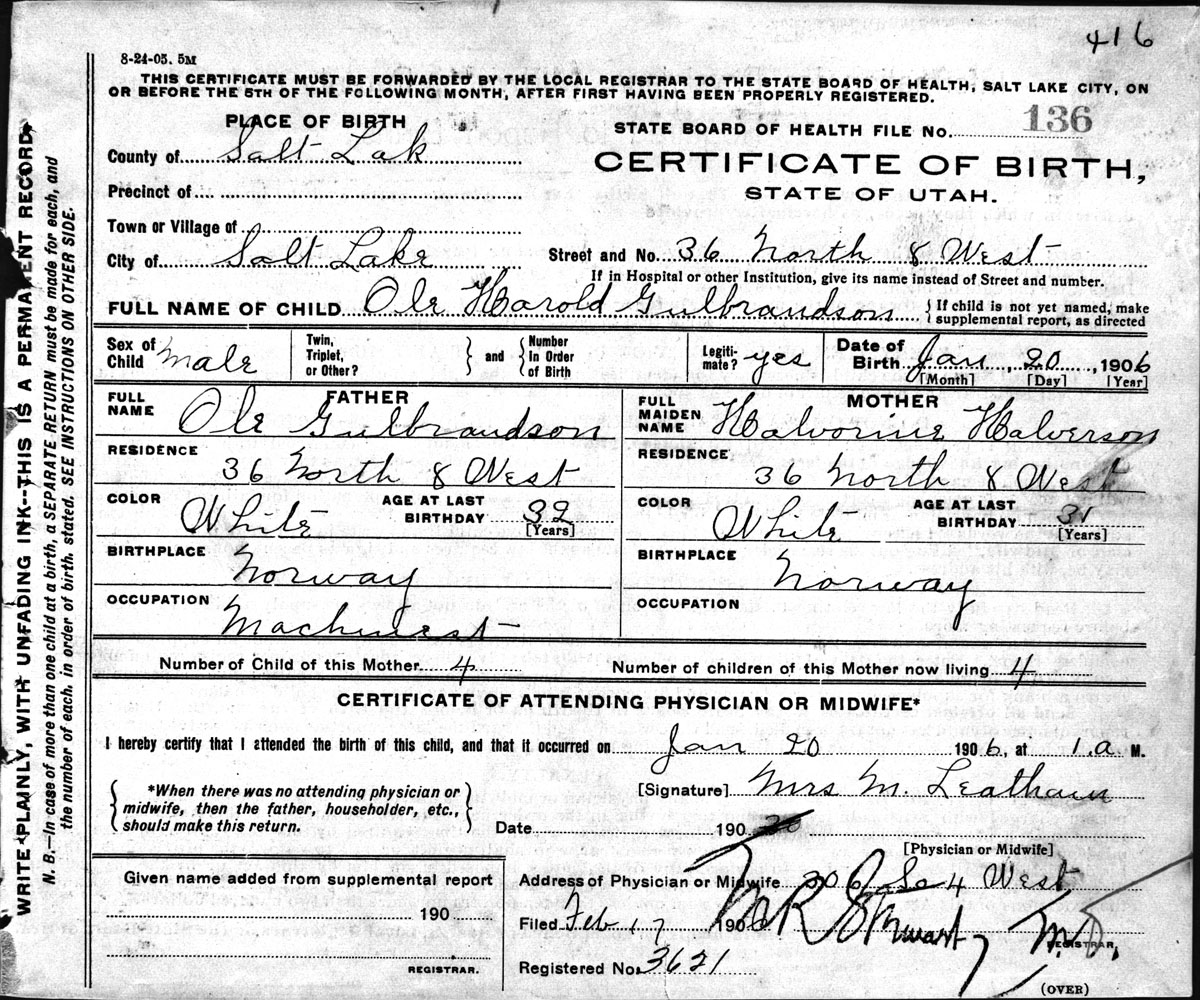 416
8-24-05. 5M
THIS CERTIFICATE MUST BE FORWARDED BY THE LOCAL REGISTRAR TO THE STATE BOARD OF HEALTH, SALT LAKE CITY, ON
OR BEFORE THE 5TH OF THE FOLLOWING MONTH, AFTER FIRST HAVING BEEN PROPERLY REGISTERED.
PLACE OF BIRTH
STATE BOARD OF HEALTH FILE No. 136
County of Salt Lak
CERTIFICATE OF BIRTH,
STATE OF UTAH.
Precinct of
Town or Village of
City of Salt Lake
Street and No. 36 North 8 West
If in Hospital or other Institution, give its name instead of Street and number.
FULL NAME OF CHILD Ole Harold Gulbrandson
{If child is not yet named, make
supplemental report, as directed
Sex of Child Male
Twin, Triplet, or Other? } and { Number in Order of Birth
Legitimate? yes
Date of Birth Jan 20, 1906
[Month] [Day] [Year]
FATHER
FULL NAME Ole Gulbrandson
RESIDENCE
36 North 8 West
COLOR White
AGE AT LAST BIRTHDAY 32
[Years]
BIRTHPLACE
Norway
OCCUPATION
Machinest
MOTHER
FULL MAIDEN NAME Halvorine Halverson
RESIDENCE
36 North 8 West
COLOR White
AGE AT LAST BIRTHDAY 31
[Years]
BIRTHPLACE
Norway
OCCUPATION
Number of Child of this Mother 4
Number of children of this Mother now living 4
CERTIFICATE OF ATTENDING PHYSICIAN OR MIDWIFE*
I hereby certify that I attended the birth of this child, and that it occurred on Jan 20 1906, at 1 a M.
{*When there was no attending physician or
midwife, then the father, householder, etc.,
should make this return.}
[Signature] Mrs M. Leatham
Date 190
[Physician or Midwife]
Given name added from supplemental report
190
REGISTRAR.
Address of Physician or Midwife So 4 West
Filed Feb 17 1906 Stewart, M.D.
REGISTRAR.
Registered No. 3621
(OVER)
WRITE PLAINLY, WITH UNFADING INK--THIS IS A PERMANENT RECORD
N. B.—In case of more than one child at a birth, a SEPARATE RETURN must be made for each, and
the number of each, in order of birth, stated. SEE INSTRUCTIONS ON OTHER SIDE.